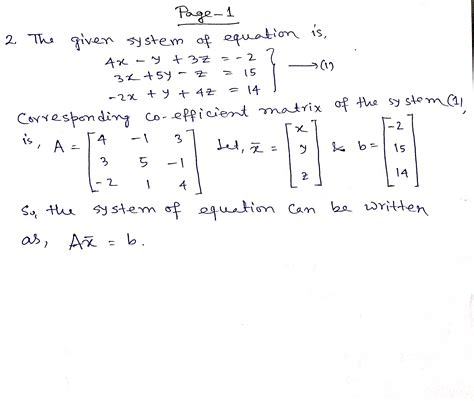 Page-1
2. The given system of equation is,
4x - y + 3z = -2
3x + 5y - z = 15 } → (1)
-2x + y + 4z = 14
Corresponding co-efficient matrix of the system (1),
is, A = [4 -1 3; 3 5 -1; -2 1 4] Let, x̄ = [x; y; z] & b = [-2; 15; 14]
So, the system of equation can be written
as, Ax̄ = b.